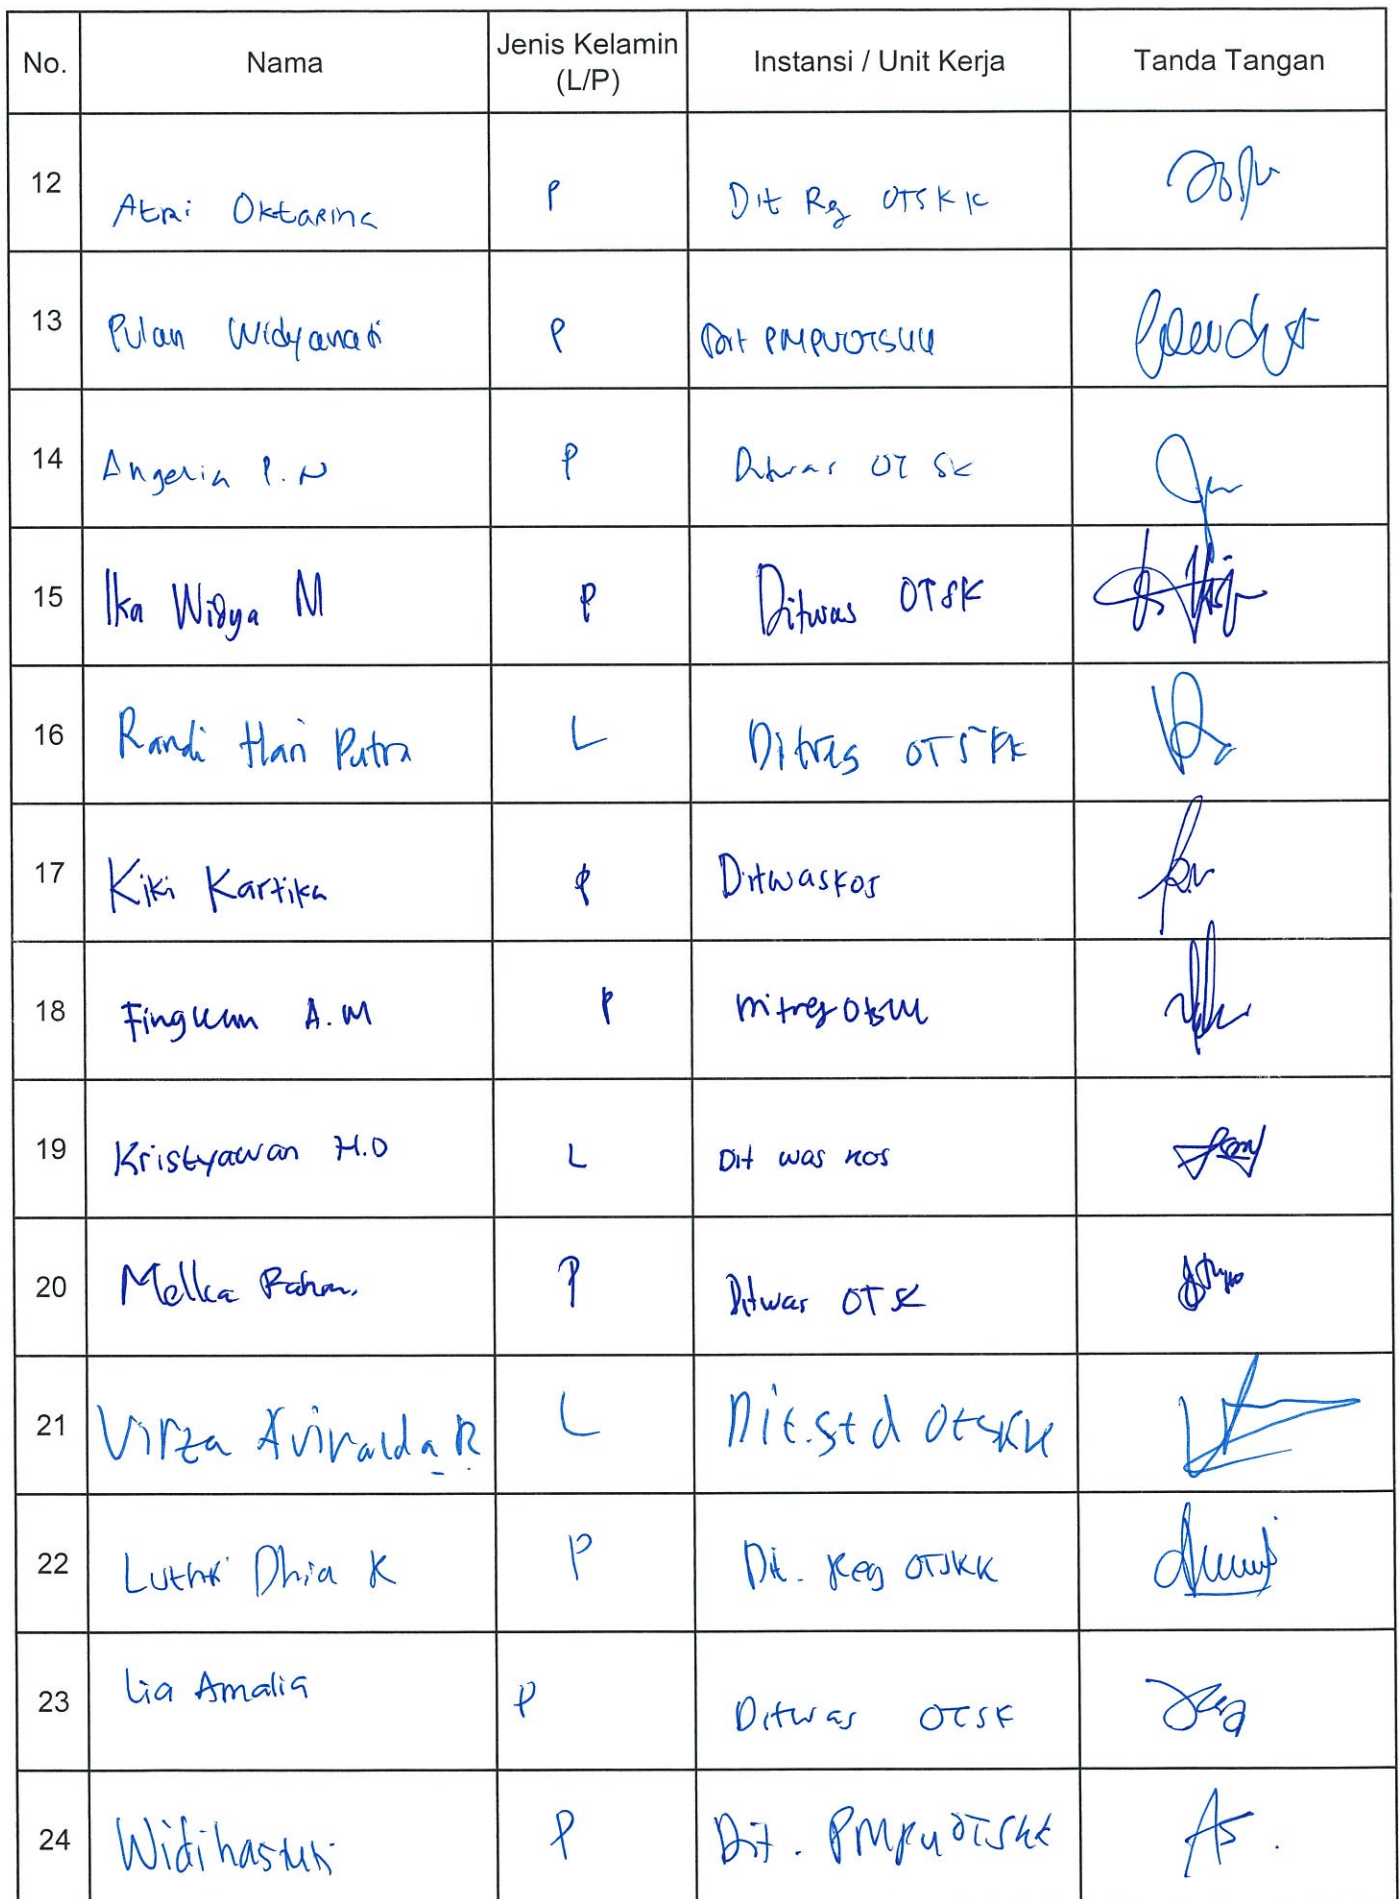 No. Nama Jenis Kelamin (L/P) Instansi / Unit Kerja Tanda Tangan
12 Atri Oktarina P Dit Reg OTSKK
13 Pulan Widyanati P Dit PMPUOTSKK
14 Angeria P. N P Ditwas OT SK
15 Ika Widya M P Ditwas OTSK
16 Randi Hari Putra L Ditreg OTSKK
17 Kiki Kartika P Ditwaskos
18 A.M P Ditreg OTSKK
19 Kristyawan H.D L Dit was kos
20 Melka P Ditwas OT SK
21 Virza Aviralda R L Dit.std OTSKK
22 Luthfi Dhia K P Dit. Reg OTSKK
23 Lia Amalia P Ditwas OTSK
24 Widihastuti P Dit. PMPU OTSKK